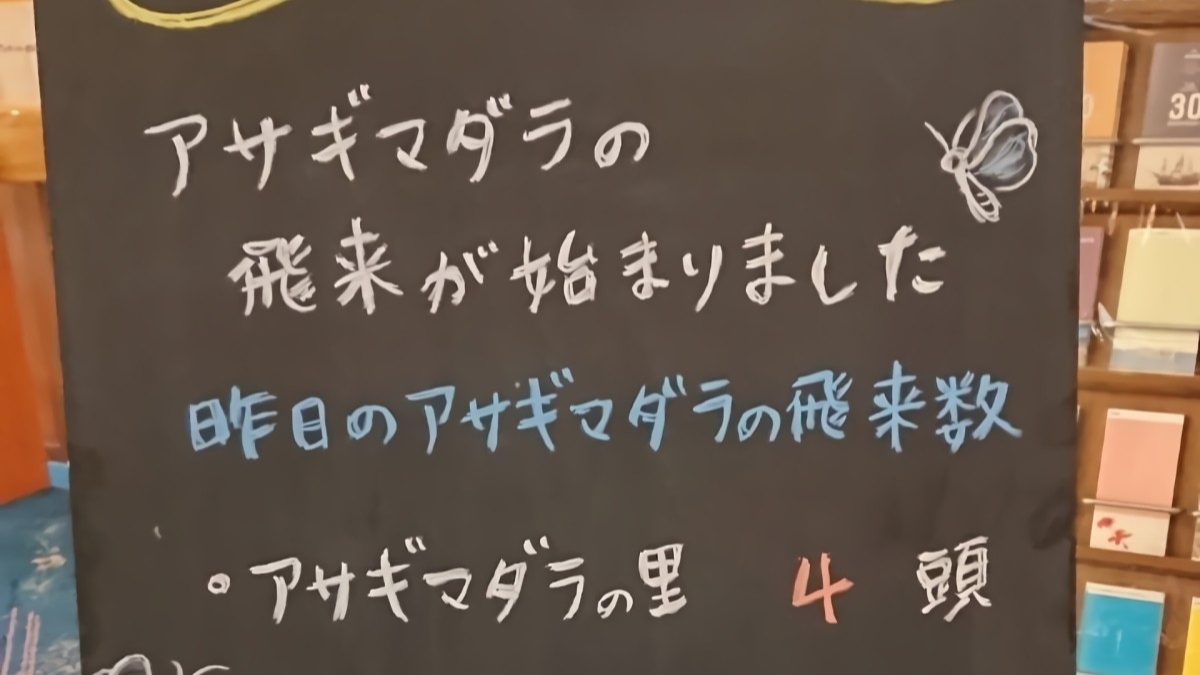 アサギマダラの
飛来が始まりました
昨日のアサギマダラの飛来数
。アサギマダラの里 4 頭
30